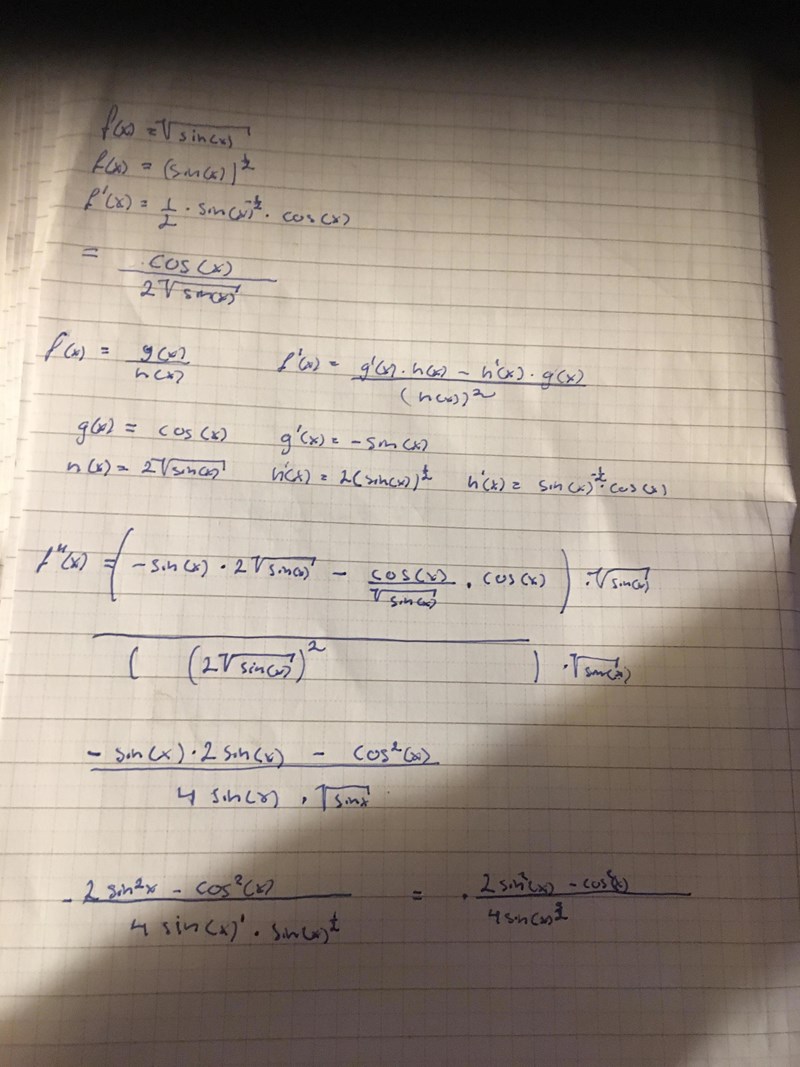 f(x) = √sin(x)
f(x) = (sin(x))^½
f'(x) = 1/2 · sin(x)^-½ · cos(x)
= cos(x) / 2√sin(x)
f(x) = g(x) / h(x) f'(x) = g'(x) · h(x) - h'(x) · g(x) / (h(x))²
g(x) = cos(x) g'(x) = -sin(x)
h(x) = 2√sin(x) h'(x) = 2(sin(x))^½ h'(x) = sin(x)^-½ · cos(x)
f''(x) = ( -sin(x) · 2√sin(x) - cos(x)/√sin(x) · cos(x) ) · √sin(x)
( (2√sin(x))² ) · √sin(x)
- sin(x) · 2 sin(x) - cos²(x)
4 sin(x) · √sinx
- 2 sin²x - cos²(x) / 4 sin(x)¹ · sin(x)^½ = · 2 sin²(x) - cos²(x) / 4 sin(x)^3/2